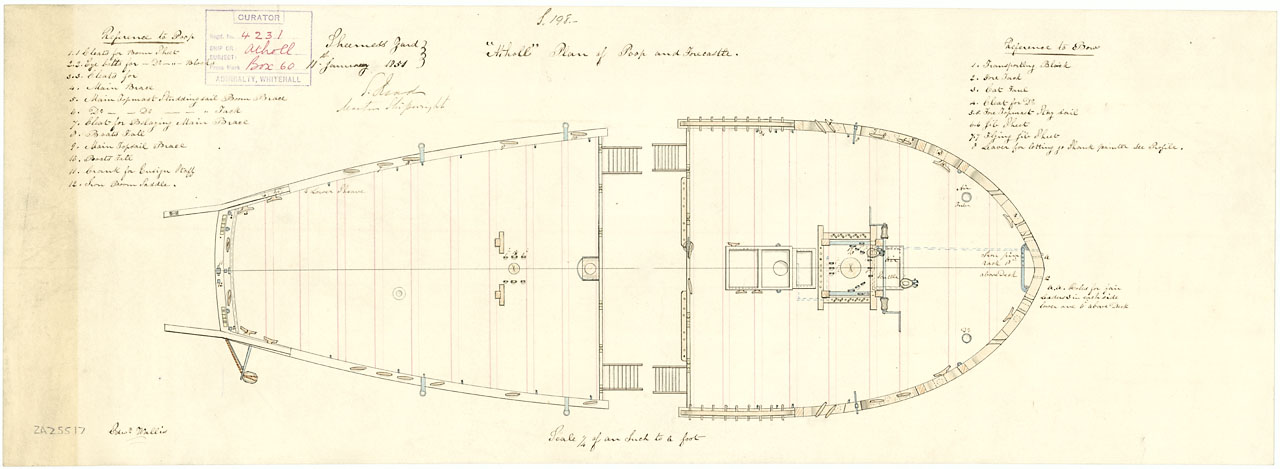 S. 198.-
CURATOR
Regd. No. 4231
SHIP OR Atholl
SUBJECT
Press Mark Box 60
ADMIRALTY, WHITEHALL
Sheerness Yard
January 1831
Master Shipwright
"Atholl" Plan of Poop and Forecastle.
Reference to Poop
1.1 Cleats for Boom Sheet
3.3. Cleats for
4. Main Brace
5. Main Topmast Studdingsail Boom Brace
6. Do - Do - Tack
7. Cleat for Belaying Main Brace
8. Boats Fall
9. Main Topsail Brace
10. Boats
11. Crank for Ensign Staff
12. Iron Boom Saddle.
Reference to Bow
1. Transporting Block
2. Fore Tack
3. Cat Faul
4. Cleat for Do
5.5 Fore Topmast Stay sail
6.6 Jib Sheet
7.7 Flying Jib Sheet
8 Leaver for letting go Shank painter See Profile.
Lower Sheave
Air
a.a. Holes for fair
leaders in each side
lower one 6" above Deck
2A2551
Edwd. Wallis
Scale ¼ of an Inch to a foot